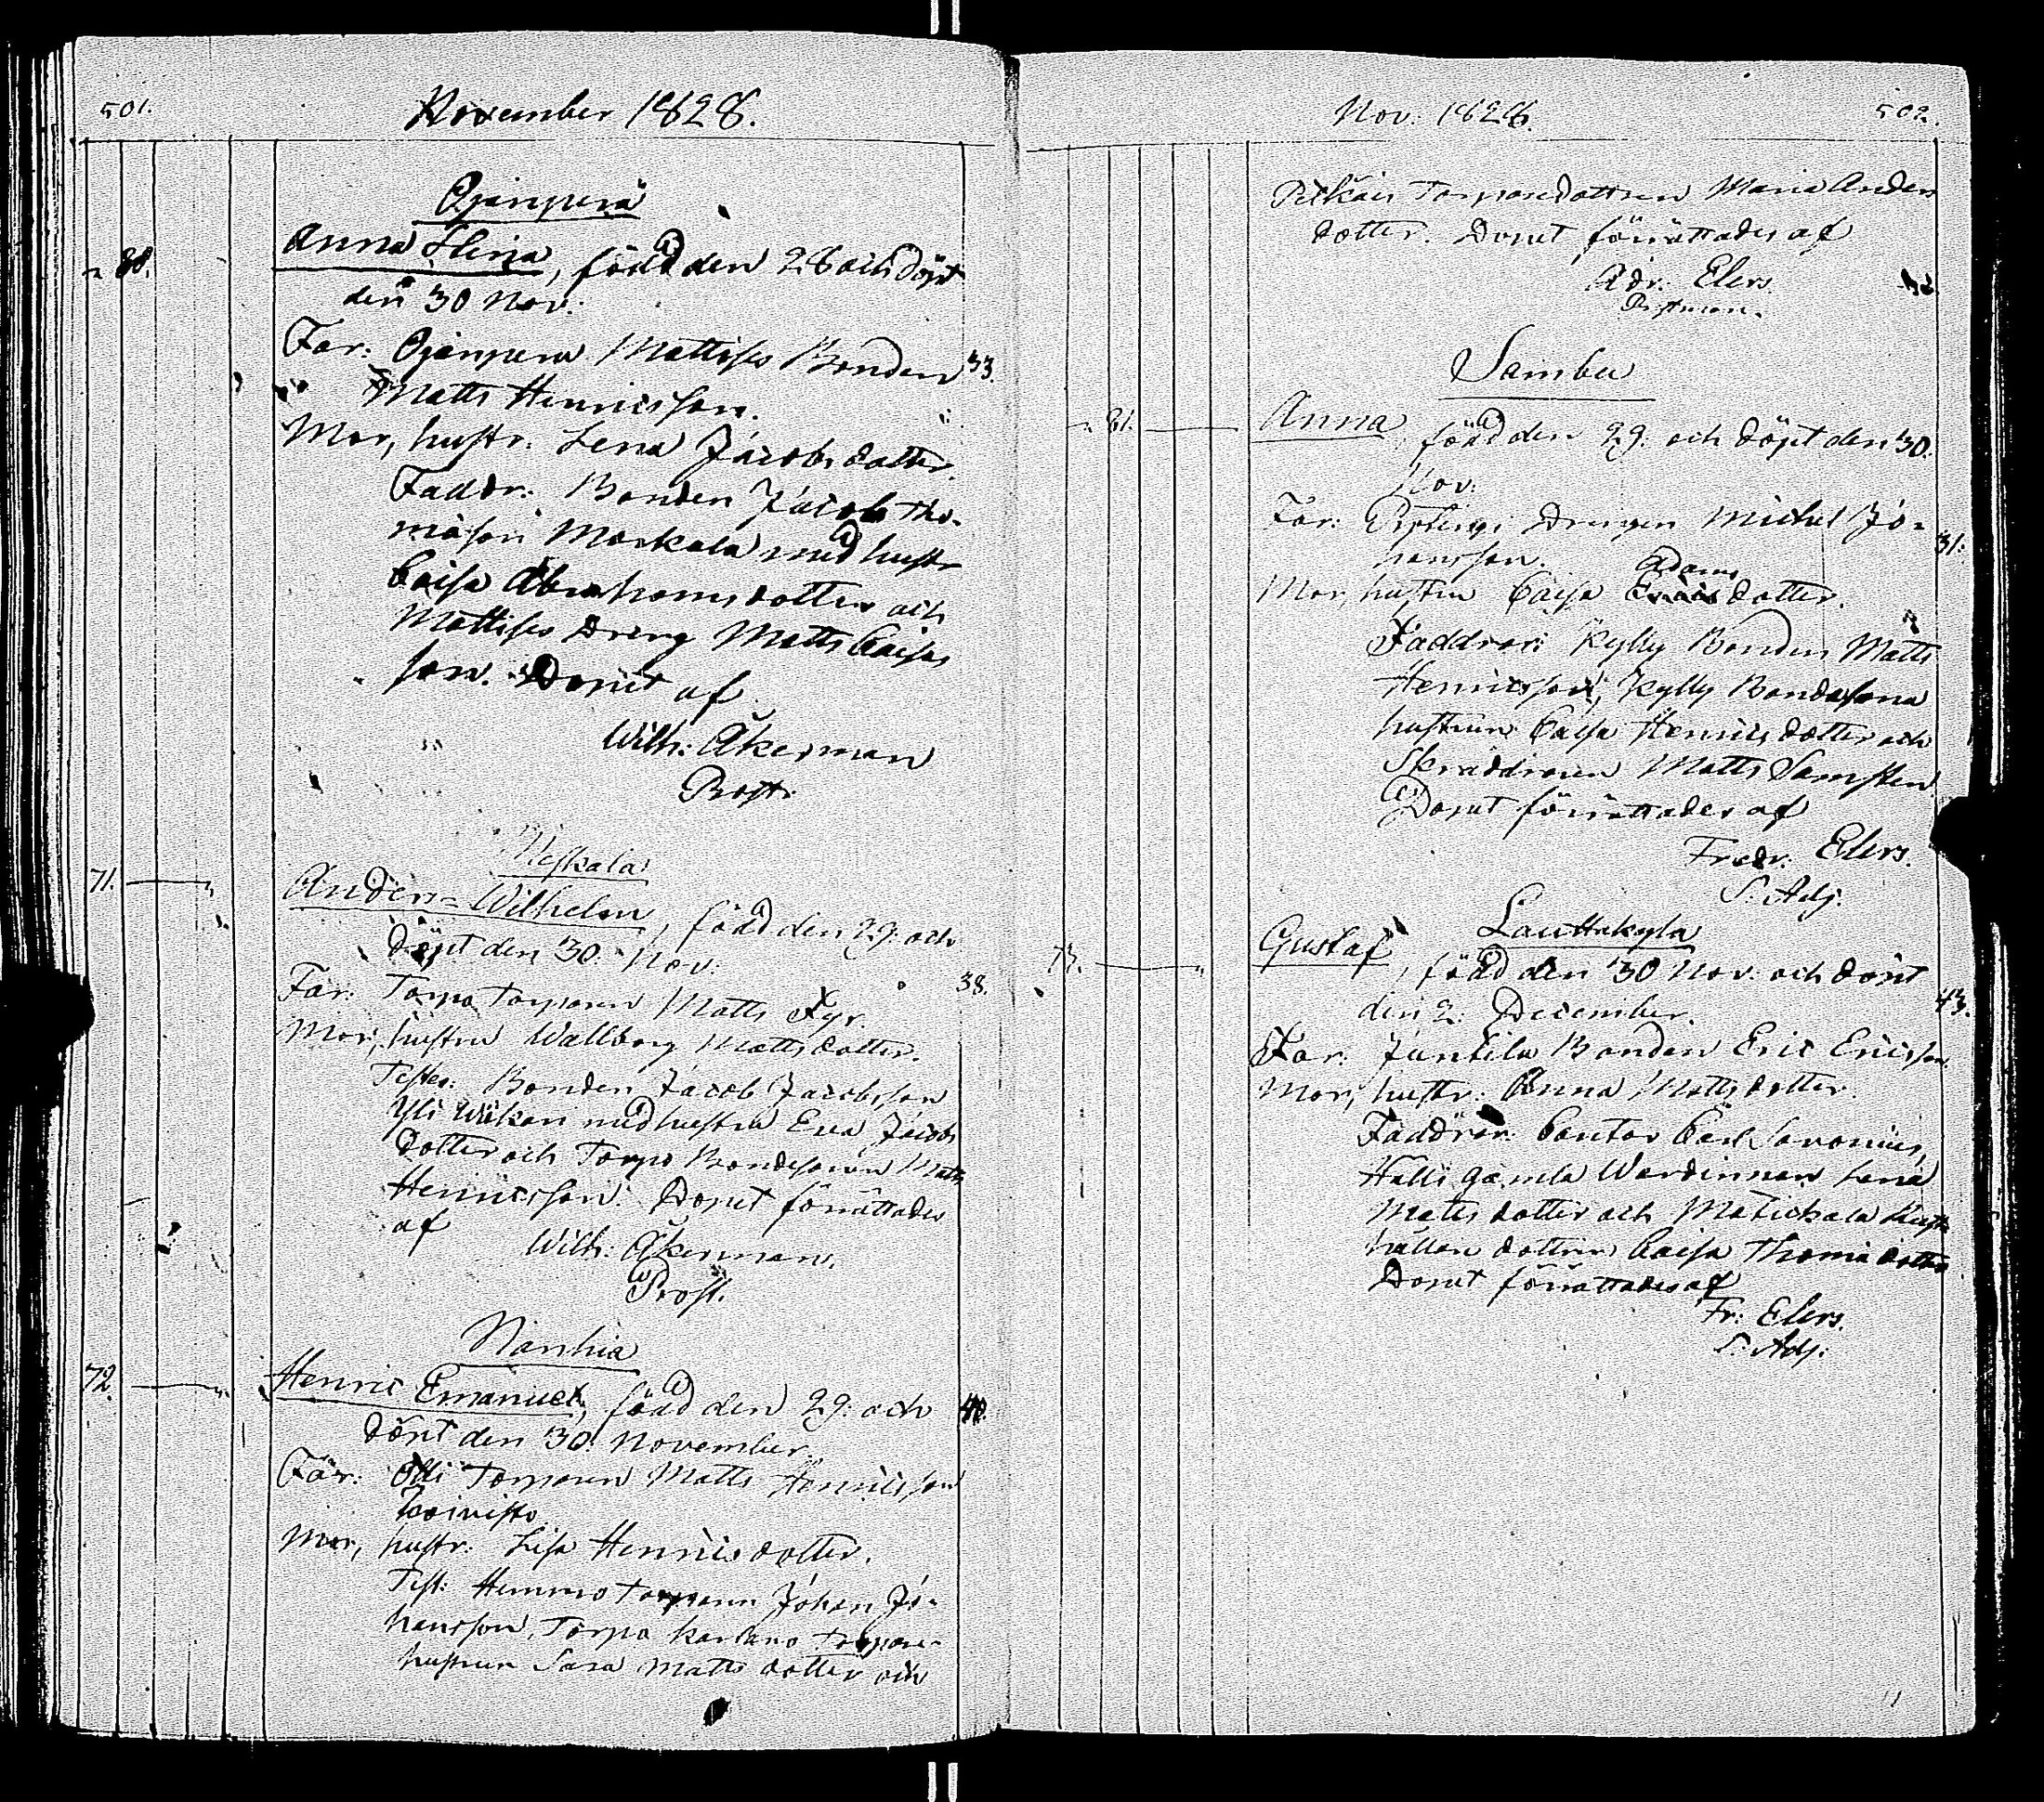 501.
November 1828.
Ojanperä
80. Anna Lena, född den 28 och döpt
den 30 Nov.
Far: Ojanperä Mattises Bonden 33.
Matts Henricsson.
Mor, hustr. Lena Jacobsdotter.
Faddr: Bonden Jacob Tho-
masson Markala med hustr
Caisa Abrahamsdotter och
Mattises Dräng Matts Caisas
son. Dopet af
Wilh: Åkerman
Prost.
Keskala
71. Anders Wilhelm, född den 29. och
döpt den 30. Nov.
Far: Torpa Torparen Matts Fyr. 38.
Mor, hustru Wallborg Mattsdotter.
Testes: Bonden Jacob Jacobsson
Yli med hustru Eva Jacobs
dotter och Torpo Bondesonen Matts
Henricsson. Dopet förrättades
af
Wilh: Åkerman.
Prost.
Nanhia
72. Henric Emanuel, född den 29. och 40.
döpt den 30. November.
Far: Olli Torparen Matts Henricsson
Koivisto
Mor, hustr. Lisa Henricsdotter.
Test: Hemmo torparen Johan Jo-
hansson, Torpa torpare-
hustrun Sara Mattsdotter och
Nov. 1828. 502.
Torparedottren Maria Anders
dotter. Dopet förrättades af
Adr. Elers.
Pastman.
Sambu
81. Anna, född den 29. och döpt den 30.
Nov.
Far: Drengen Michel Jo- 31.
hansson.
Adams
Mor, hustru Caisa dotter.
Faddrar: Kylly Bonden Matts
Henricsson, Kylly Bondesons
hustrun Caisa Henricsdotter och
Skräddaren Matts Samsten
Dopet förrättades af
Fredr. Elers.
S. Adj.
Lauttakylä
73. Gustaf, född den 30 Nov. och döpt
den 2. December. 43.
Far: Juntila Bonden Eric Ericsson.
Mor, hustr: Anna Mattsdotter.
Faddrar: Cantor Carl Savonius,
Halli gamla Wärdinnan Lena
Matts dotter och
dottren Caisa Thomædotter
Dopet förrättades af
Fr: Elers.
S. Adj.